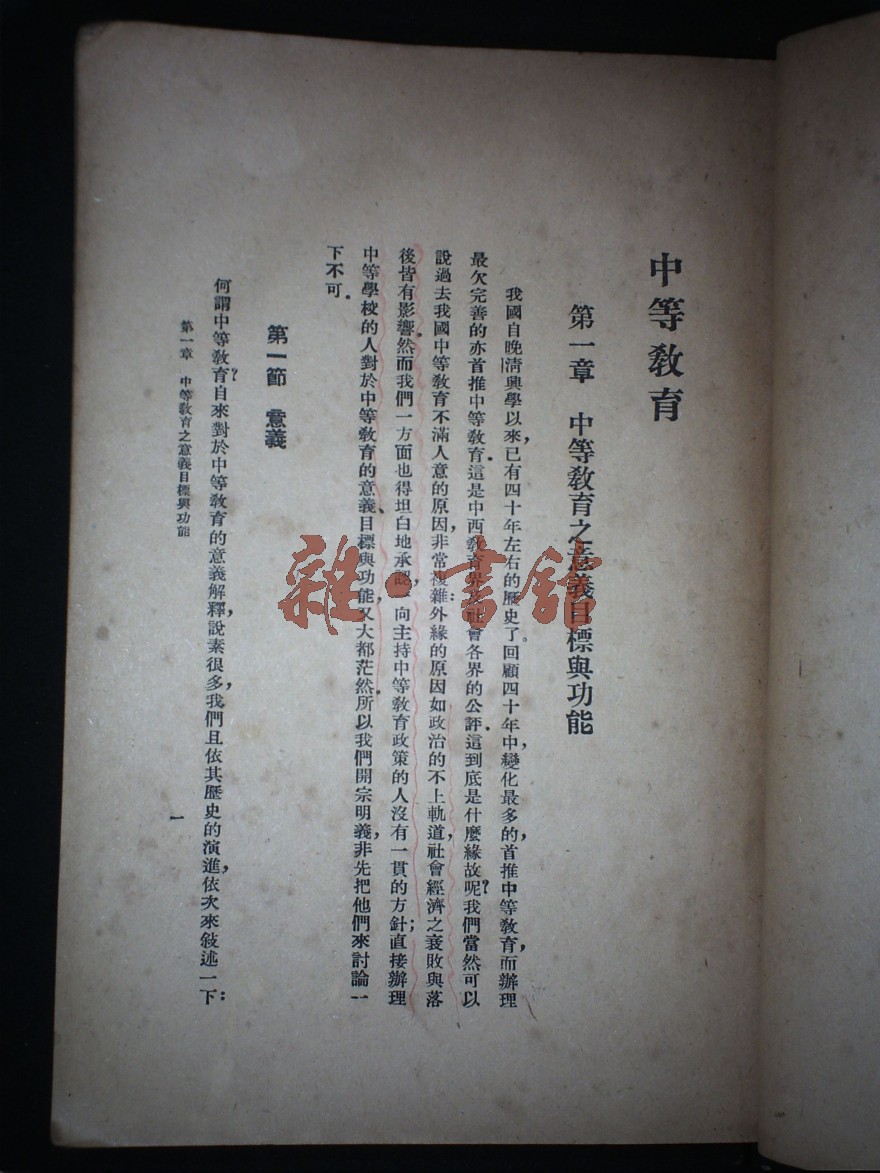 中等教育
第一章　中等教育之意義目標與功能
我國自晚清興學以來，已有四十年左右的歷史了。回顧四十年中，變化最多的，首推中等教育，而辦理
最欠完善的亦首推中等教育。這是中西教育界及社會各界的公評。這到底是什麼緣故呢？我們當然可以
說過去我國中等教育不滿人意的原因，非常複雜：外緣的原因如政治的不上軌道，社會經濟之衰敗與落
後皆有影響。然而我們一方面也得坦白地承認，一向主持中等教育政策的人沒有一貫的方針；直接辦理
中等學校的人對於中等教育的意義、目標與功能，又大都茫然。所以我們開宗明義，非先把他們來討論一
下不可。
第一節　意義
何謂中等教育？自來對於中等教育的意義解釋，說素很多，我們且依其歷史的演進，依次來敍述一下：
第一章　中等教育之意義目標與功能
一
雜·書館